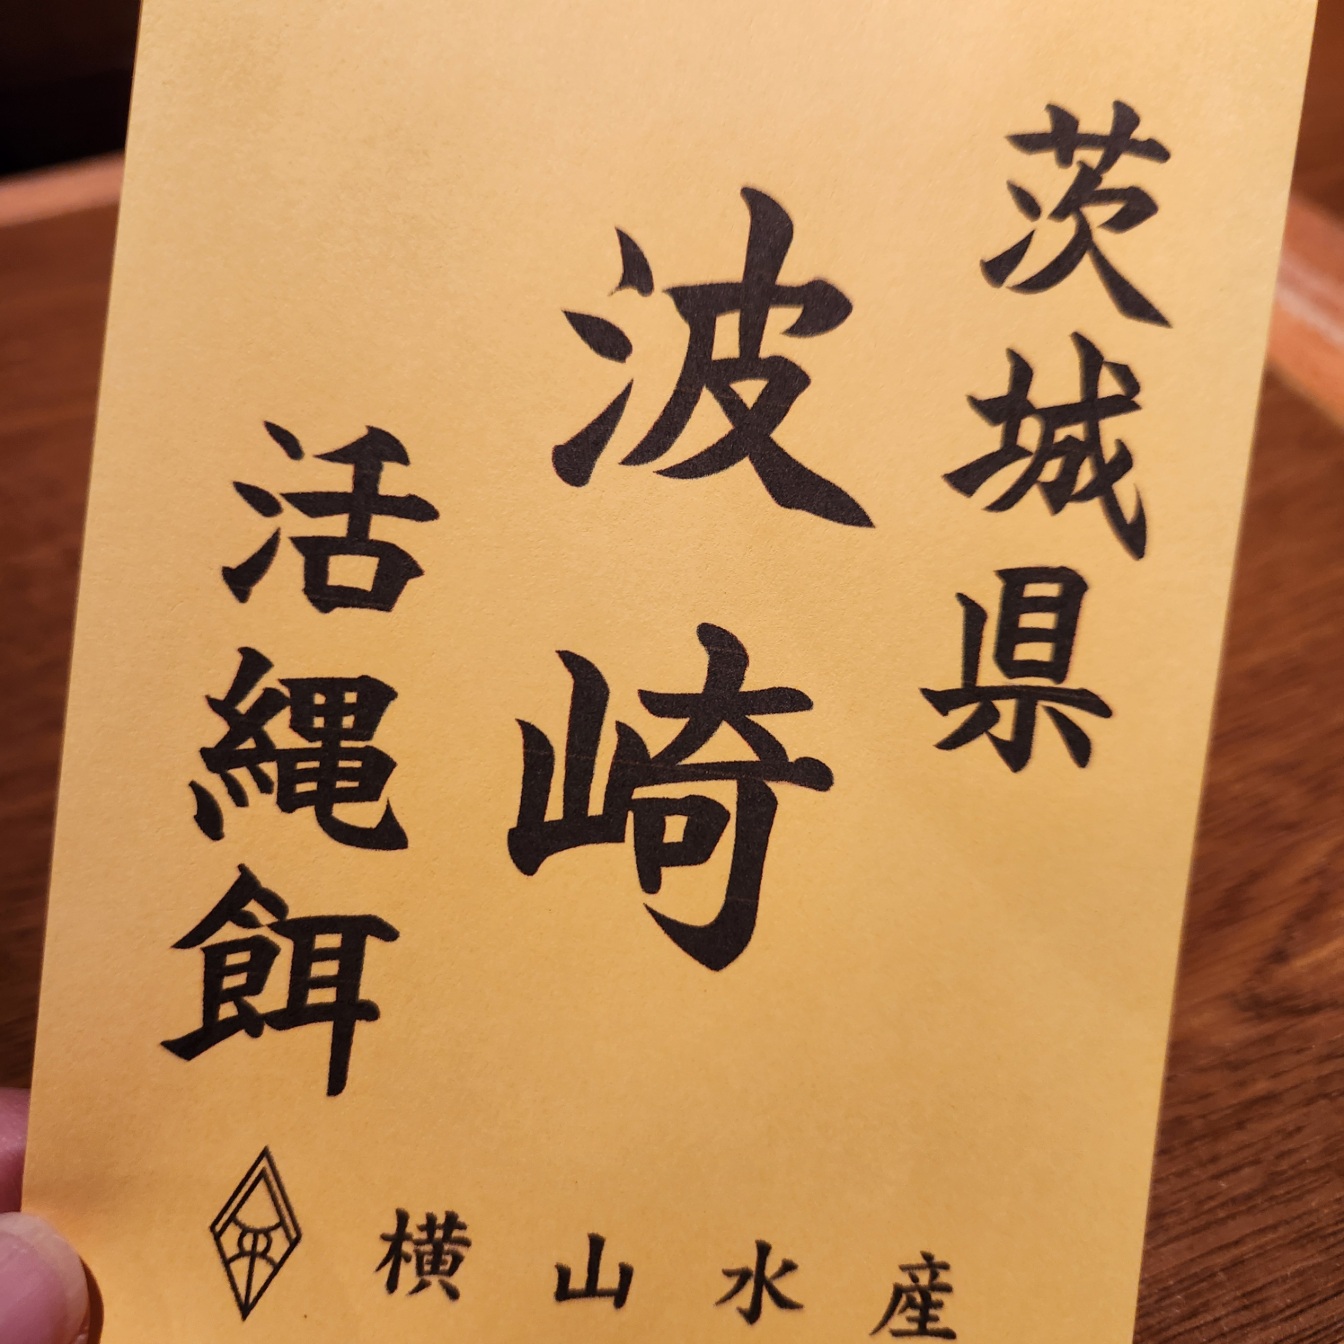 茨城県
波崎
活縄餌
横山水産